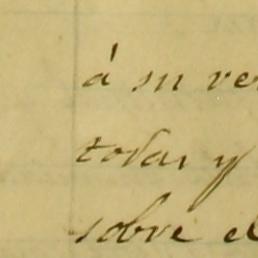 á su ver
todas y
sobre el